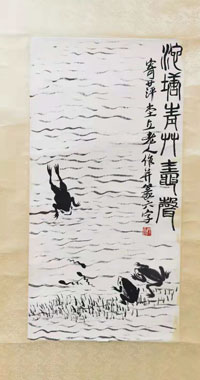 池塘青艸聲
寄萍堂上老人作并篆六字